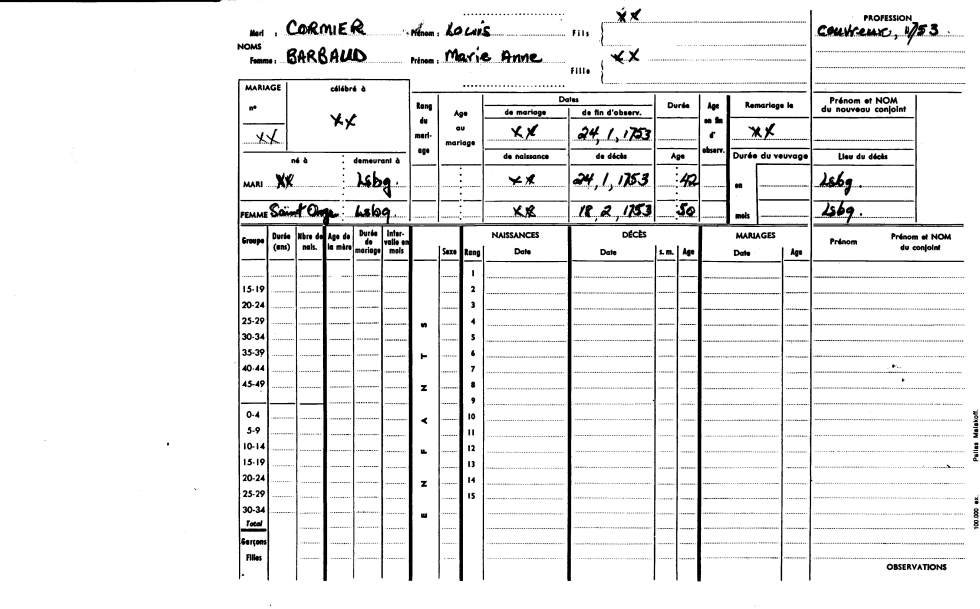 Mari : CORMIER Prénom : Louis Fils XX PROFESSION
Couvreur, 1/53.
NOMS
Femme : BARBAUD Prénom : Marie Anne Fille XX
MARIAGE célébré à
nº XX XX
Rang du mariage
Age au mariage
Dates
de mariage de fin d'observ. Durée Age en fin d'observ. Remariage le Prénom et NOM du nouveau conjoint
XX 24, 1, 1753 XX
né à demeurant à de naissance de décès Age Durée du veuvage Lieu du décès
MARI XX Lsbg. XX 24, 1, 1753 42 en Lsbg.
FEMME Saint Onge Lsbg. XX 18, 2, 1753 50 mois Lsbg.
Groupe Durée (ans) Nbre de nais. Age de la mère Durée de mariage Intervalle en mois ENFANTS Sexe Rang NAISSANCES Date DÉCÈS Date s. m. Age MARIAGES Date Age Prénom Prénom et NOM du conjoint
1
15-19 2
20-24 3
25-29 4
30-34 5
35-39 6
40-44 7
45-49 8
9
0-4 10
5-9 11
10-14 12
15-19 13
20-24 14
25-29 15
30-34
Total
Garçons
Filles
OBSERVATIONS
100.000 ex. Pailles Malakoff.